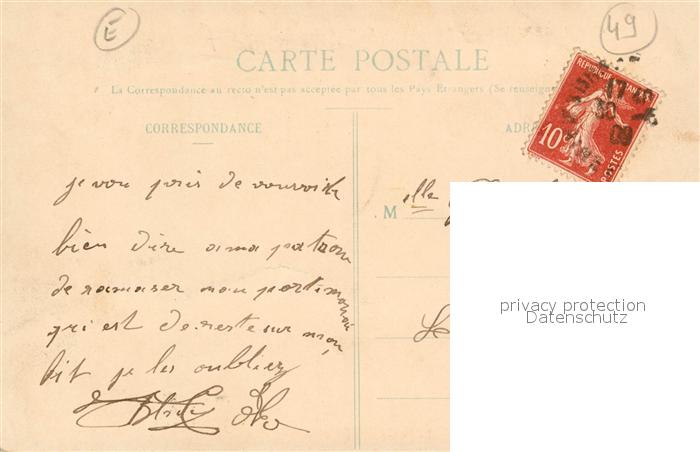 E
49
CARTE POSTALE
La Correspondance au recto n'est pas acceptée par tous les Pays Etrangers (Se renseign
CORRESPONDANCE
ADR
REPUBLIQUE FRANÇAISE
10
POSTES
17
30
09
M elle
je vou prie de vouvoir
bien dire a ma patron
de ramaser mon portimonaie
qui est de reste sur mon
lit je les oublier
privacy protection
Datenschutz